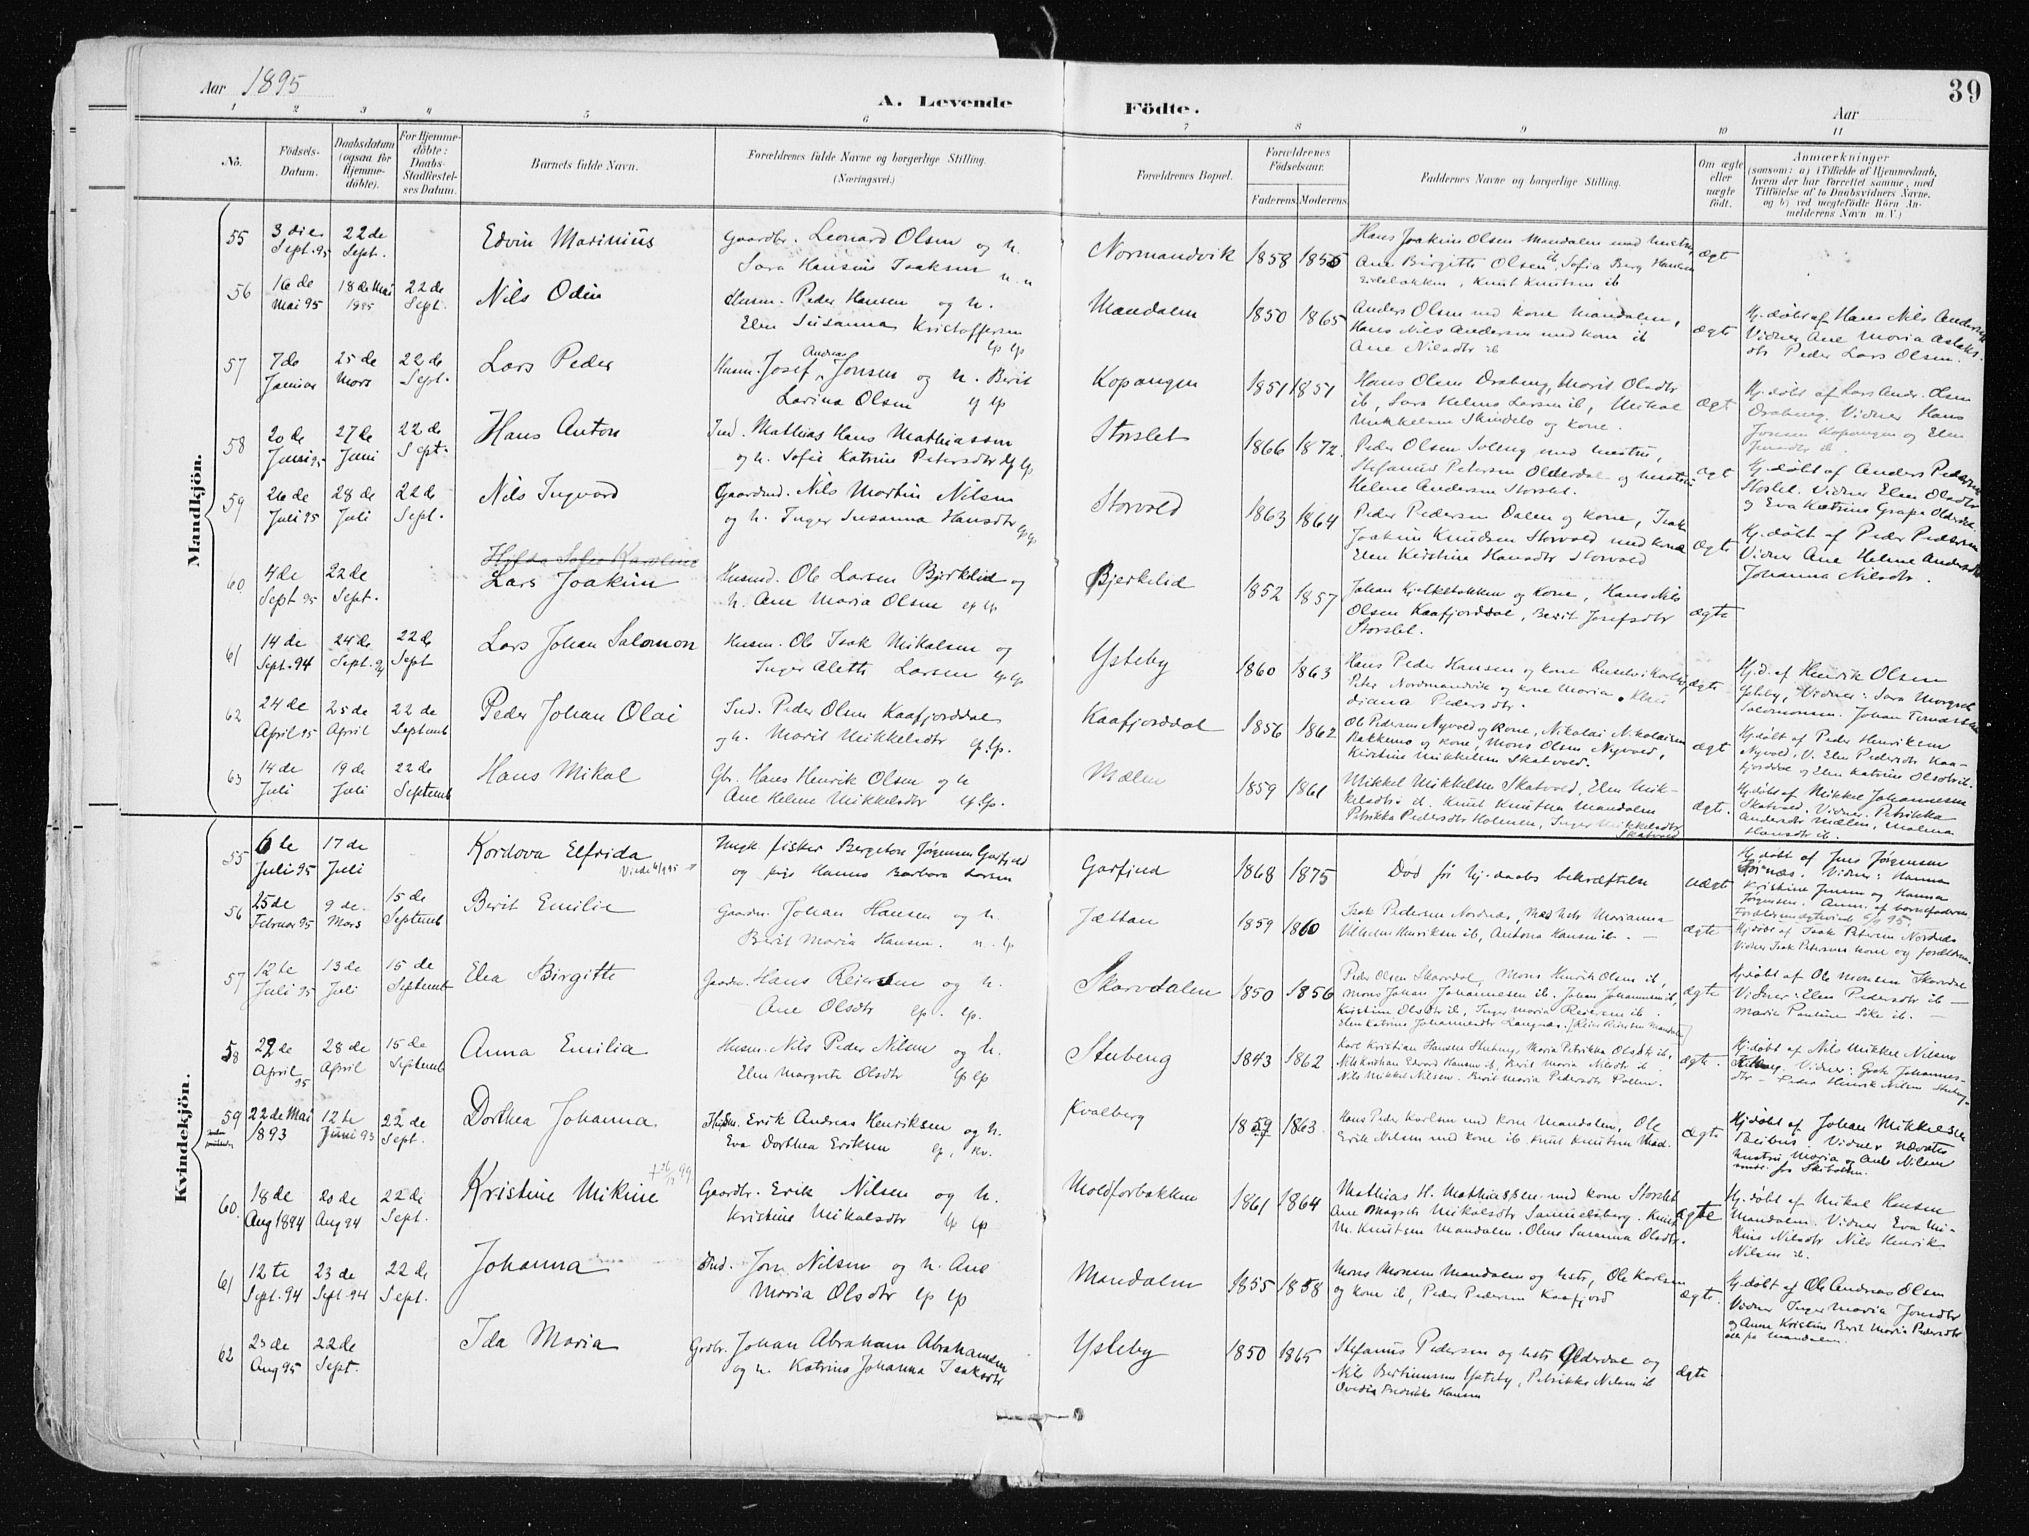 39
Aar 1895
A. Levende Födte.
Aar
1 2 3 4 5 6 7 8 9 10 11
No.
Födsels-Datum.
Daabsdatum (ogsaa for Hjemmedöbte).
For Hjemmedöbte: Daabs-Stadfæstelses Datum.
Barnets fulde Navn.
Forældrenes fulde Navne og borgerlige Stilling.
(Næringsvei.)
Forældrenes Bopæl.
Forældrenes Födselsaar.
Faderens. Moderens.
Faddernes Navne og borgerlige Stilling.
Om ægte eller uægte födt.
Anmærkninger
(saasom: a) i Tilfælde af Hjemmedaab, hvem der har forrettet samme, med Tilföielse af to Daabsvidners Navne, og b) ved uægtefödte Börn Anmelderens Navn m. V.)
Mandkjön.
55 3die Sept. 95 22de Sept. Edvin Marinius Gaardbr. Leonard Olsen og h. Sara Hansine Isaksen Normandvik 1858 1855 Hans Joakim Olsen Mandalen med hustru, Ane Birgitte Olsen ib, Sofia Berg Hansen, Knut Knutsen ib ægt
56 16de Mai 95 18de Mai 1895 22de Sept. Nils Odin Husm. Peder Hansen og h. Elen Susanna Kristoffersen lp lp Mandalen 1850 1865 Anders Olsen med kone Mandalen, Hans Nils Andersen med kone ib Ane Nilsdtr ib ægt Hj. döbt af Hans Nils Andersen Vidner Ane Maria Aslaksdtr Peder Lars Olsen.
57 7de Januar 25de Mars 22de Sept. Lars Peder Husm. Josef Andreas Jonsen og h. Berit Larina Olsen lp lp Kopangen 1851 1851 Hans Olsen Draberg, Marit Olsdtr ib, Sara Helene Larsen ib, Mikal Mikkelsen Skindelo og kone. ægt Hj. döbt af Lars Andr. Olsen Draberg. Vidner Hans Jonsen Kopangen og Elen Jonsdtr ib.
58 20de Juni 95 27de Juni 22de Sept. Hans Anton Ind. Mathias Hans Mathiassen og h. Sofie Katrine Petersdtr lp lp Storslet 1866 1872. Peder Olsen Soleng med hustru, Stefanus Petersen Olderdal og hustru Helene Andersen Storslet. ægt Hj. döbt af Anders Pedersen Storslet. Vidner Elen Olsdtr og Eva Katrine Grape Olderdal
59 26de Juli 95 28de Juli 22de Sept. Nils Ingvard Gaardmd. Nils Martin Nilsen og h. Inger Susanna Hansdtr lp lp Storvold 1863 1864 Peder Pedersen Dalen og kone, Isak Joakim Knudsen Storvold med kone Elen Kirstine Hansdtr Storvold ægte Hj. döbt af Peder Pedersen Vidner Ane Helene Andersdtr Johanna Nilsdtr.
60 4de Sept 95 22de Sept. Hilda Sofie Karoline Lars Joakim Husmd. Ole Larsen Bjerklid og h. Ane Maria Olsen lp lp Bjerkelid 1852 1857 Johan Kjelkebakken og kone, Hans Nils Olsen Kaafjorddal, Berit Josefsdtr Storslet. ægte
61 14de Sept. 94 24de Sept. 94 22de Sept Lars Johan Salomon Husm. Ole Isak Mikalsen og Inger Aletta Larsen lp lp Ysteby 1860 1863 Hans Peder Hansen og kone Peter Nordmandvik og kone Maria diana Pedersdtr. ægte Hj. d. af Henrik Olsen Ysteby, Vidner: Sara Margret Salomonsen. Johan
62 24de April 95 25de April 22de Septemb Peder Johan Olai Ind. Peder Olsen Kaafjorddal og h. Marit Mikkelsdtr lp. lp. Kaafjorddal 1856 1862 Ole Pedersen Nyvold og kone, Nikolai Nikolaisen Bakkemo og kone, Mons Olsen Nyvold, Kirstine Mikkelsen Skatvold. ægt Hj. döbt af Peder Henriksen Nyvold, V. Elen Pedersdtr Kaafjorddal og Elen Katrine Olsdtr ib.
63 14de Juli 19de Juli 22de Septemb Hans Mikal Gbr. Hans Henrik Olsen og h Ane Helene Mikkelsdtr lp. lp. Mælen 1859 1861 Mikkel Mikkelsen Skatvold, Elen Mikkelsdtr ib. Knut Knutsen Mandalen Petrikka Pedersdtr Holmen, Inger Mikkelsdtr Skatvold ægte. Hj. döbt af Mikkel Johannesen Skatvold. Vidner. Petrikka Andersdtr Mælen, Malena Hansdtr ib.
Kvindekjön.
55 6te Juli 95 17de Juli Kordova Elfrida Ungk. fisker Bergeton Jörgensen Garfjeld og pige Hanna Barbara Larsen Garfjeld 1868 1875 Död för hj.daabs bekræftelse uægt Hj. döbt af Jens Jörgensen Vidner: Hanna Kristine Jensen og Hanna Jörgensen. Anm. af barnefaderen.
56 25de Februar 95 9de Mars 15de Septemb Berit Emilie Gaardm. Johan Hansen og h. Berit Maria Hansen. n. lp Jættan 1859 1860 Isak Pedersen Nordnæs, med hstr Marianna Vilhelm Henriksen ib, Antona Hansen ib. ægte Hj. döbt af Isak Petersen Nordnæs Vidner Isak Petersens kone og forældrene.
57 12te Juli 95 13de Juli 15de Septemb Elea Birgitte Gaardm. Hans Reiersen og h. Ane Olsdtr lp. lp. Skarvdalen 1850 1856 Peder Olsen Skarvdal, Mons Henrik Olsen ib, Mons Johan Johannesen ib. Johan Johannesen ib, Kristine Olsdtr ib, Inger Maria Reiersen ib. Elen Katrine Johannesdtr Langnæs. [Reier Reiersen Mandalen] ægte Hj. döbt af Ole Monsen Skarvdal Vidner: Elen Pedersdtr ib Marie Pauline Löke ib.
58 22de April 95 28de April 15de Septemb Anna Emilia Husm. Nils Peder Nilsen og h. Elen Margrete Olsdtr lp lp Stubeng 1843 1862 Karl Kristian Hansen Stubeng, Maria Petrikka Olsdtr ib, Nils Kristian Edvard Hansen ib, Berit Maria Nilsdtr ib Nils Mikkel Nilsen. Berit Maria Pedersdtr Pollen. ægte. Hj. döbt af Nils Mikkel Nilsen Vidner: Johannesdtr Peder Henrik Nilsen Stubeng
59 22de Mai 1893 12te Juni 93 22de Sept. Dorthea Johanna Husm. Erik Andreas Henriksen og h. Eva Dorthea Eriksen lp. kv. Kvalberg 1859 1863 Hans Peder Karlsen med kone Mandalen, Ole Erik Nilsen med kone ib. Knut Knutsen Mand. ægte Hj. döbt af Johan Mikkelsen Vidner nævntes hustru Maria og Ane Nilsen
60. 18de Aug 1894 20de Aug 94 22de Sept. Kristine Mikine † 26/3 99 Gaardbr. Erik Nilsen og h. Kristine Mikalsdtr lp lp Moldforbakken 1861 1864 Mathias H. Mathiassen med kone Storslet Ane Magrete Mikalsdtr Samuelsberg. Knut M. Knutsen Mandalen. Oline Susanna Olsdtr. ægte Hj. döbt af Mikal Hansen Mandalen. Vidner Eva Mikine Nilsdtr Nils Henrik Nilsen ib.
61 12te Sept. 94 23de Sept. 94 22de Sept. Johanna Ind. Jon Nilsen og h. Ane Maria Olsdtr lp lp Mandalen 1855 1858 Mons Monsen Mandalen og hstr, Ole Karlsen og kone ib, Peder Pedersen Kaafjord ægte. Hj. döbt af Ole Andreas Olsen Vidner Inger Maria Jonsdtr og Anne Kristine Berit Maria Pedersdtr alle på Mandalen.
62 25de Aug 95 22de Sept. Ida Maria Grdbr. Johan Abraham Abrahamsen og h. Katrine Johanna Isaksdtr Ysteby 1850 1865 Stefanus Pedersen og hstr Olderdal og Nils Bertinussen Ysteby, Petrikke Nilsen ib Ovedia Fredrikke Hansen ægte